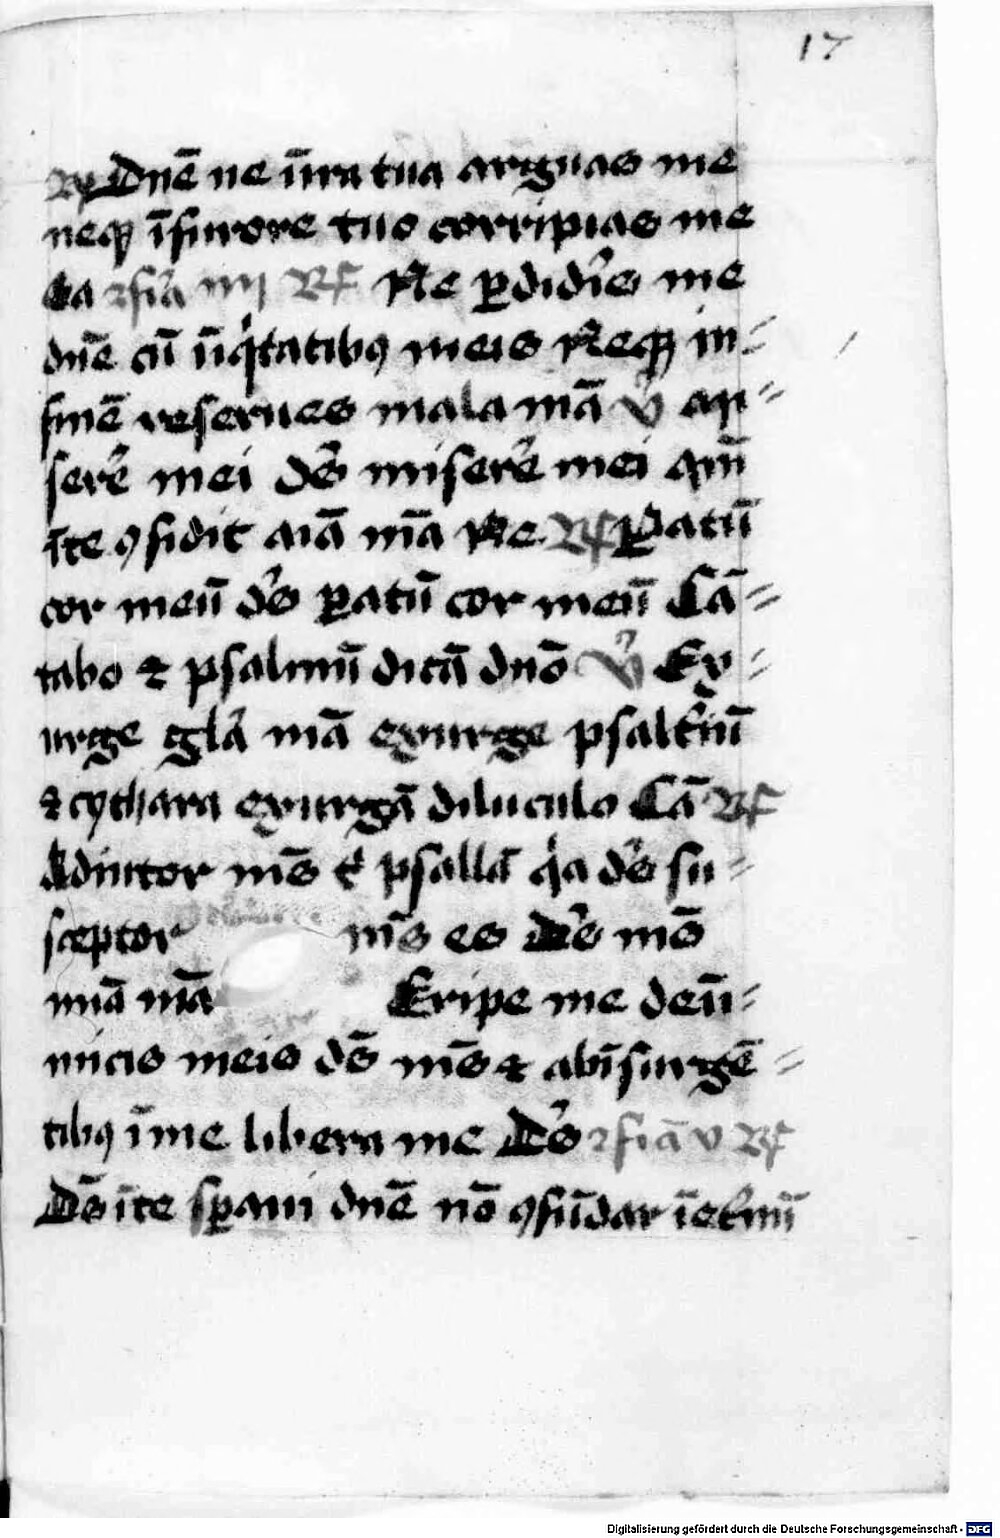 17
R Dnē ne ī ira tua arguas me
neqꝫ ī furore tuo corripias me
Ca ꝛ fīa iiij Rſ Ne ꝑdidēs me
dnē cū īiqͥtatibꝯ meis Neqꝫ in=
finē reserues mala mā v̊
serē mei dēs miserē mei qm̄
ī te ꝯfidit aīa mā Ne Rſ Paratū
cor meū dēs ꝑatū cor meū Cā=
tabo ⁊ psalmū dicā dnō v̊ Ex=
urge glā mā exurge psaltīū
⁊ cythara exurgā diluculo Cā Rſ
Adiutor mēs tͥ psallā qͥa dēs su=
sceptor mēs es Dēs mēs
mīa mā Eripe me de in=
micis meis dēs mēs ⁊ ab īsurgē=
tibꝯ ī me libera me Dēs ꝛ fīa v Rſ
Dēs ī te sꝑaui dnē nō ꝯfūdar ī etnū
Digitalisierung gefördert durch die Deutsche Forschungsgemeinschaft - DFG